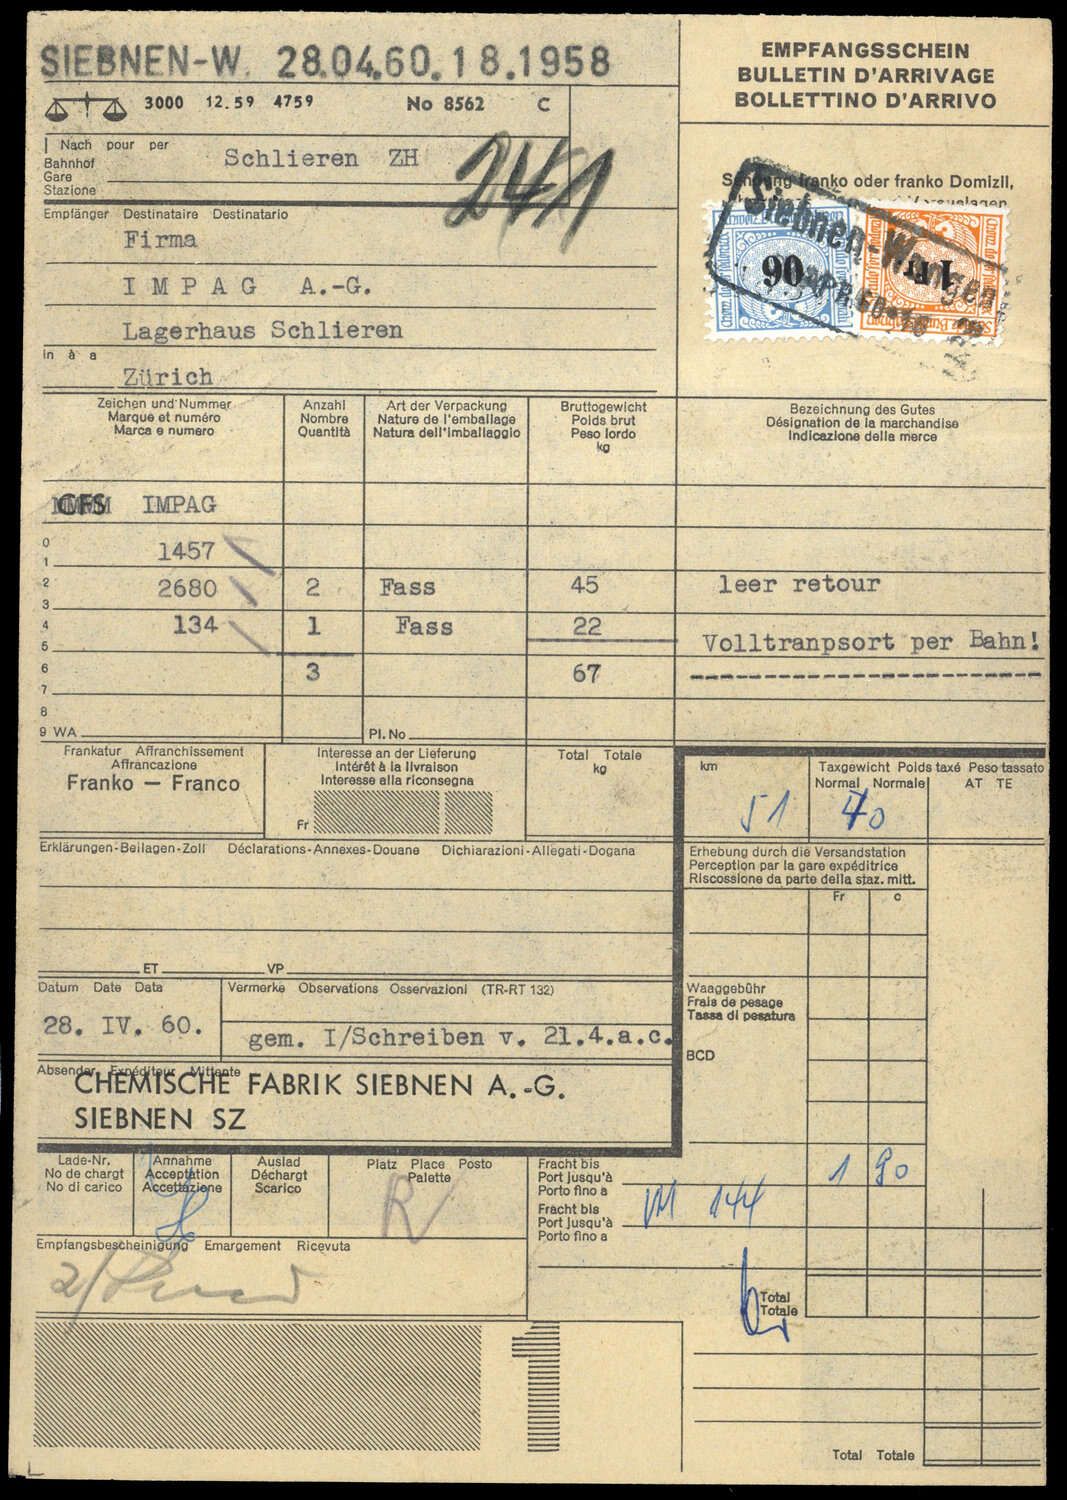 SIEBNEN-W. 28.04.60.18.1958
3000 12.59 4759 No 8562 C
EMPFANGSSCHEIN
BULLETIN D'ARRIVAGE
BOLLETTINO D'ARRIVO
Nach pour per
Bahnhof
Gare
Stazione
Schlieren ZH
241
Sendung franko oder franko Domizil,
Siebnen-Wangen
APR.60
90
1 Fr.
Empfänger Destinataire Destinatario
Firma
IMPAG A.-G.
Lagerhaus Schlieren
in à a
Zürich
Zeichen und Nummer
Marque et numéro
Marca e numero
Anzahl
Nombre
Quantità
Art der Verpackung
Nature de l'emballage
Natura dell'imballaggio
Bruttogewicht
Poids brut
Peso lordo
kg
Bezeichnung des Gutes
Désignation de la marchandise
Indicazione della merce
CFS IMPAG
0
1457
1
2 2680 2 Fass 45 leer retour
3
4 134 1 Fass 22
5 Volltranpsort per Bahn!
6 3 67
7
8
9 WA Pl. No
Frankatur Affranchissement
Affrancazione
Franko — Franco
Interesse an der Lieferung
Intérêt à la livraison
Interesse alla riconsegna
Fr
Total Totale
kg
km
51
Taxgewicht Poids taxé Peso tassato
Normal Normale AT TE
70
Erklärungen-Beilagen-Zoll Déclarations-Annexes-Douane Dichiarazioni-Allegati-Dogana
Erhebung durch die Versandstation
Perception par la gare expéditrice
Riscossione da parte della staz. mitt.
Fr c
ET VP
Datum Date Data
28. IV. 60.
Vermerke Observations Osservazioni (TR-RT 132)
gem. I/Schreiben v. 21.4.a.c.
Waaggebühr
Frais de pesage
Tassa di pesatura
BCD
Absender Expéditeur Mittente
CHEMISCHE FABRIK SIEBNEN A.-G.
SIEBNEN SZ
Lade-Nr.
No de chargt
No di carico
Annahme
Acceptation
Accettazione
Auslad
Déchargt
Scarico
Platz Place Posto
Palette
R
Fracht bis
Port jusqu'à
Porto fino a
1 90
Fracht bis
Port jusqu'à
Porto fino a
144
Empfangsbescheinigung Emargement Ricevuta
Total
Totale
1
Total Totale